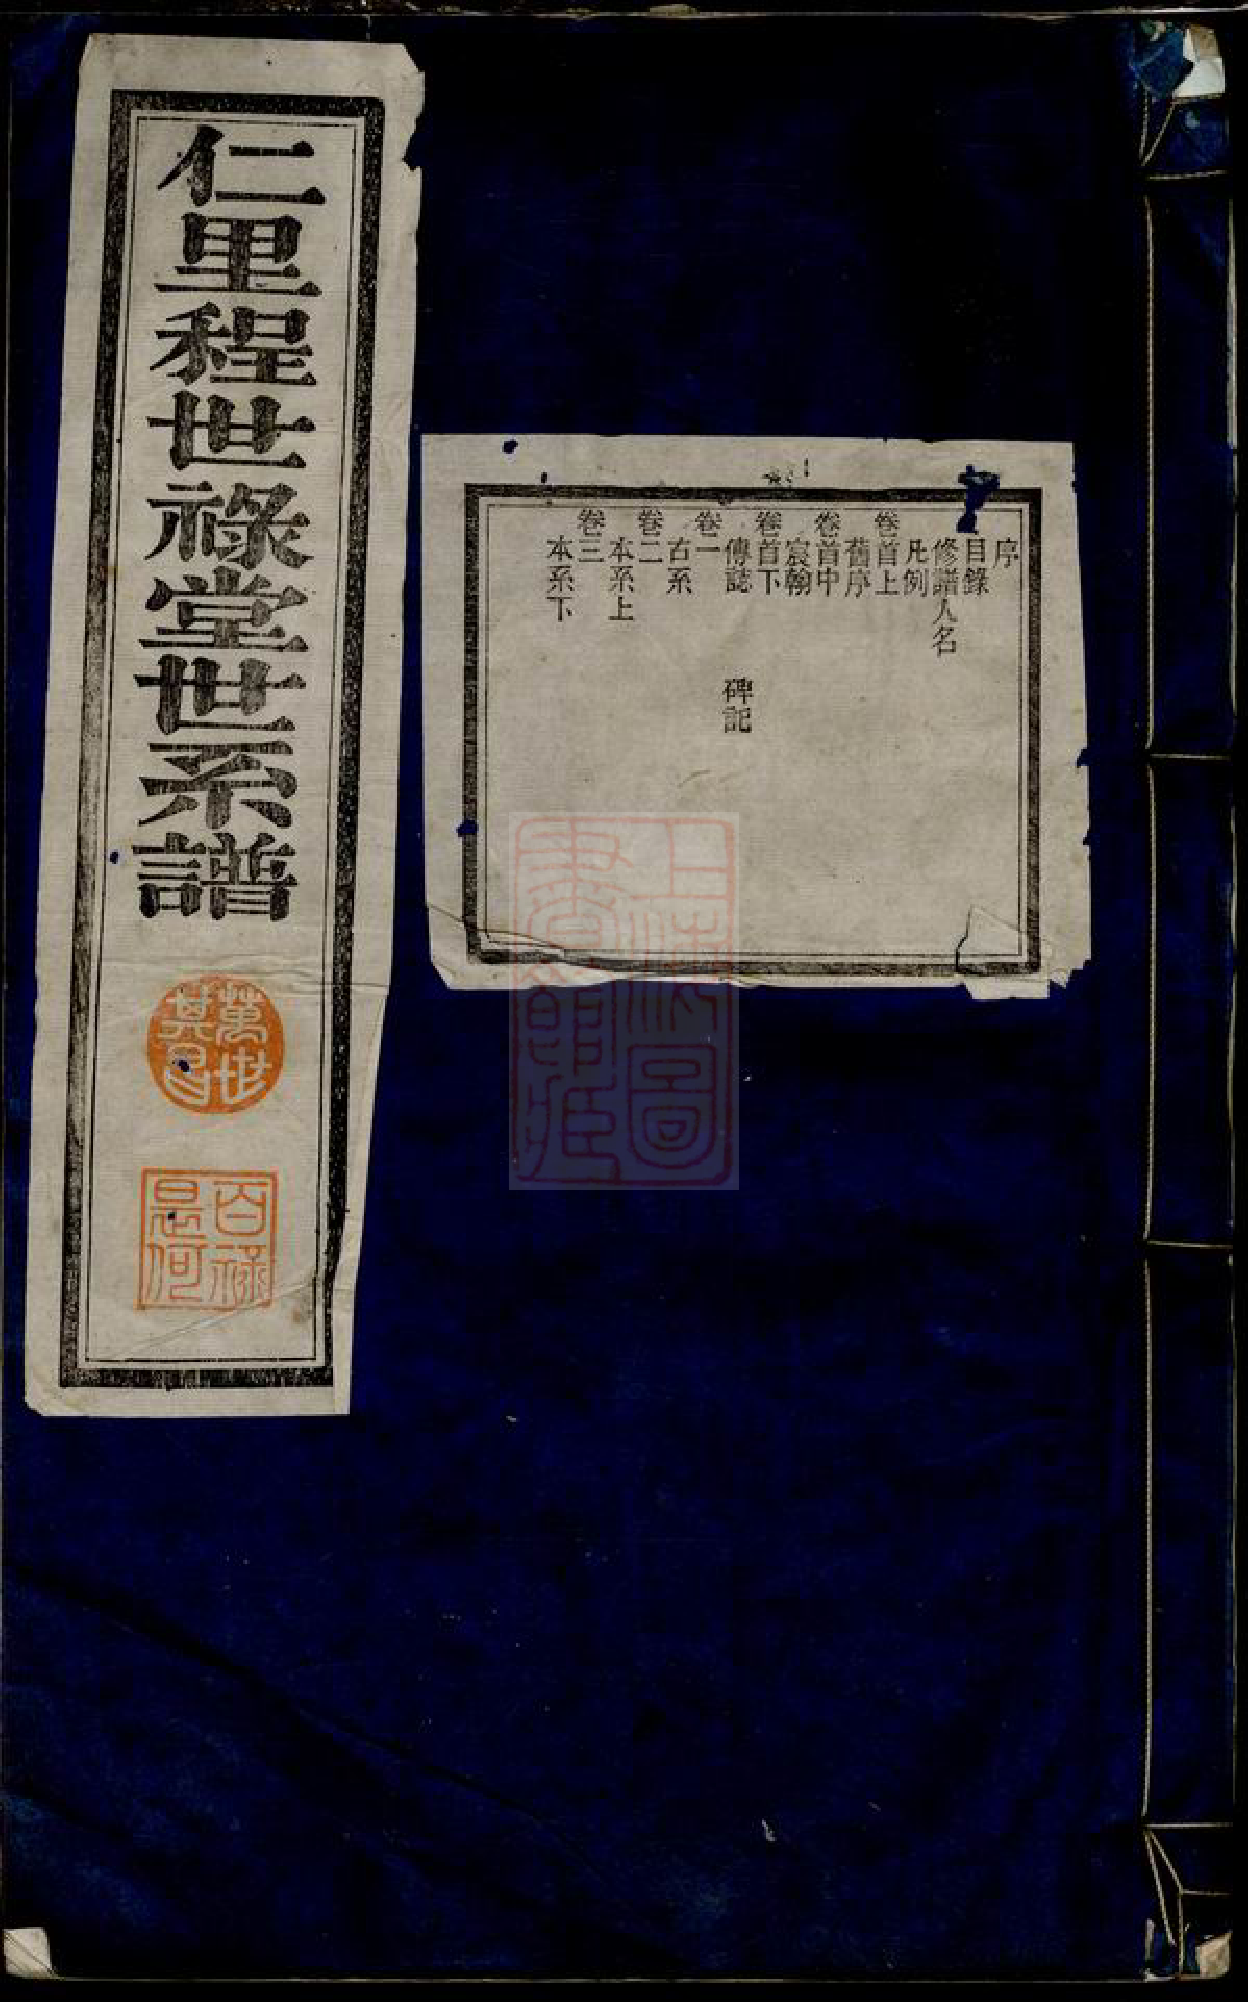 序
目錄
修譜人名
凡例
卷首上
舊序
卷首中
宸翰
卷首下
傳誌　碑記
卷一
古系
卷二
本系上
卷三
本系下
仁里程世祿堂世系譜
萬世
其昌
百祿
是何
上海圖
書館藏